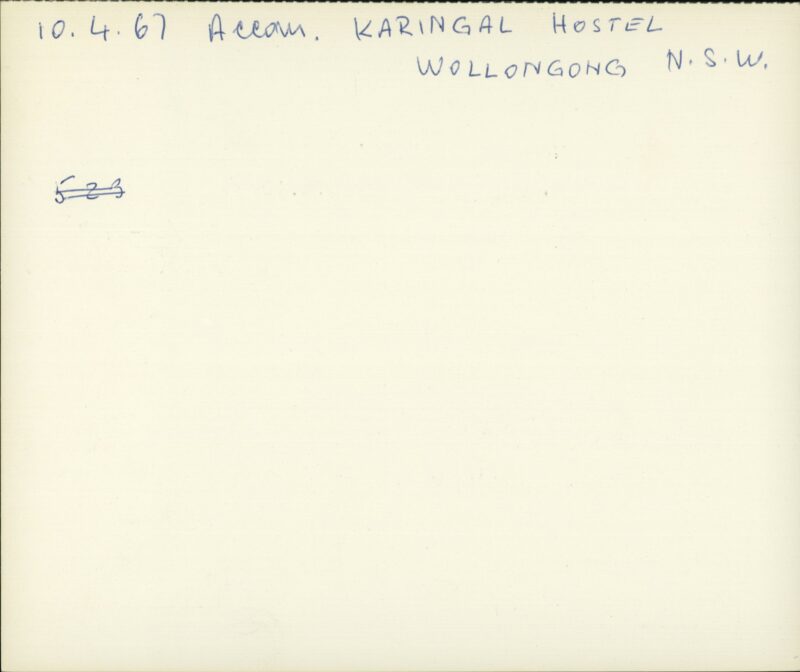 10.4.67 Accom. KARINGAL HOSTEL
WOLLONGONG N.S.W.
523